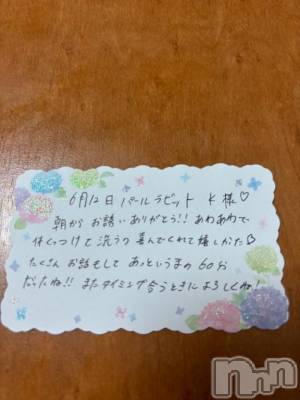 6月12日 パールラビット K様♡
朝から お誘いありがとう!! あわあわで
体くっつけて 洗うの 喜んでくれて嬉しかた♡
たくさん お話もして あっというまの 60分
だったね!! またタイミング合うときに よろしくね!
nnn